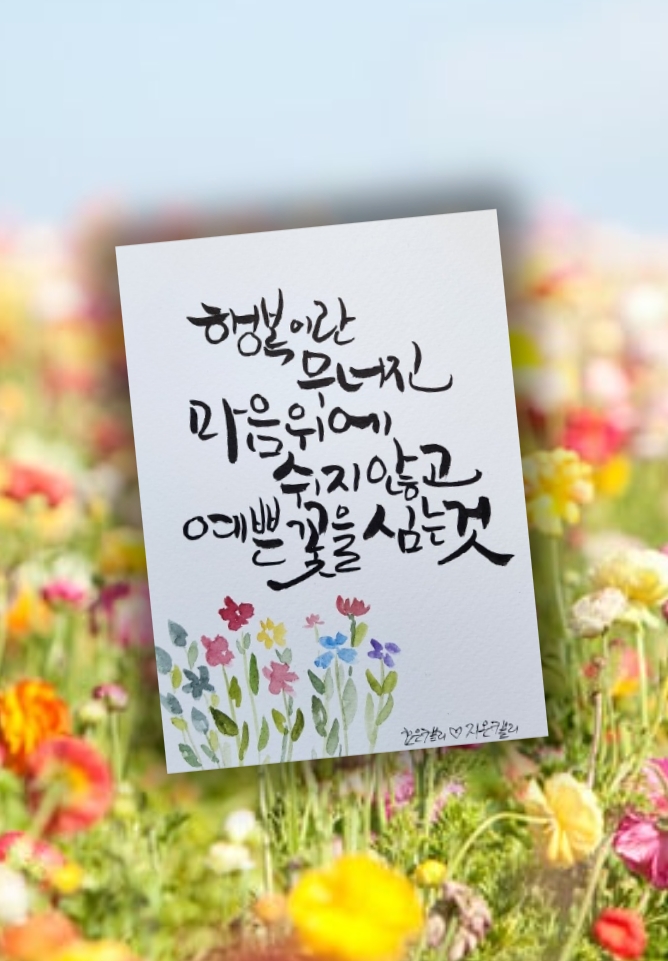 행복이란
무너진
마음위에
쉬지않고
예쁜 꽃을 심는것
캘리 ♡ 자운캘리